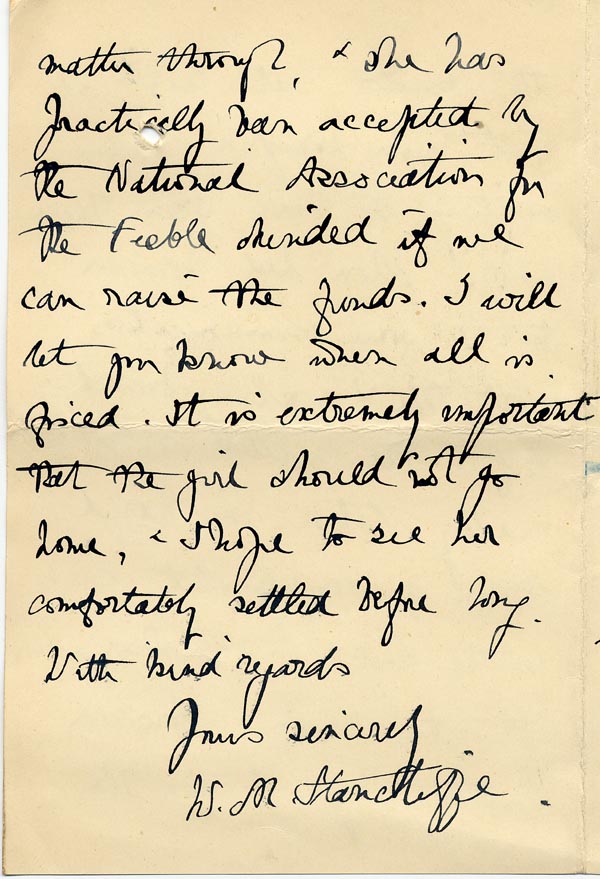 matter through, & she has
practically been accepted by
the National Association for
the Feeble Minded if we
can raise the funds. I will
let you know when all is
fixed. It is extremely important
that the girl should not go
home, & I hope to see her
comfortably settled before long.
With kind regards
Yours sincerely
W. M. Stancliffe.